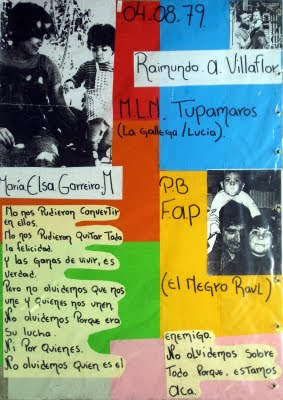 04.08.79.
Raimundo.a.Villaflor.
M.L.N. Tupamaros
(La Gallega/Lucia).
María.Elsa.Garreiro.M
P.B
Fap
(El Negro Raul)
No nos Pudieron Convertir
en ellos.
No nos Pudieron Quitar Toda
la felicidad.
y las Ganas de vivir, es
verdad.
Pero no olvidemos que nos
une y Quienes nos unen
No olvidemos Porque era
Su lucha.
Ni Por Quienes.
No olvidemos Quien es el
enemigo.
No olvidemos Sobre
Todo Porque, estamos
aca.